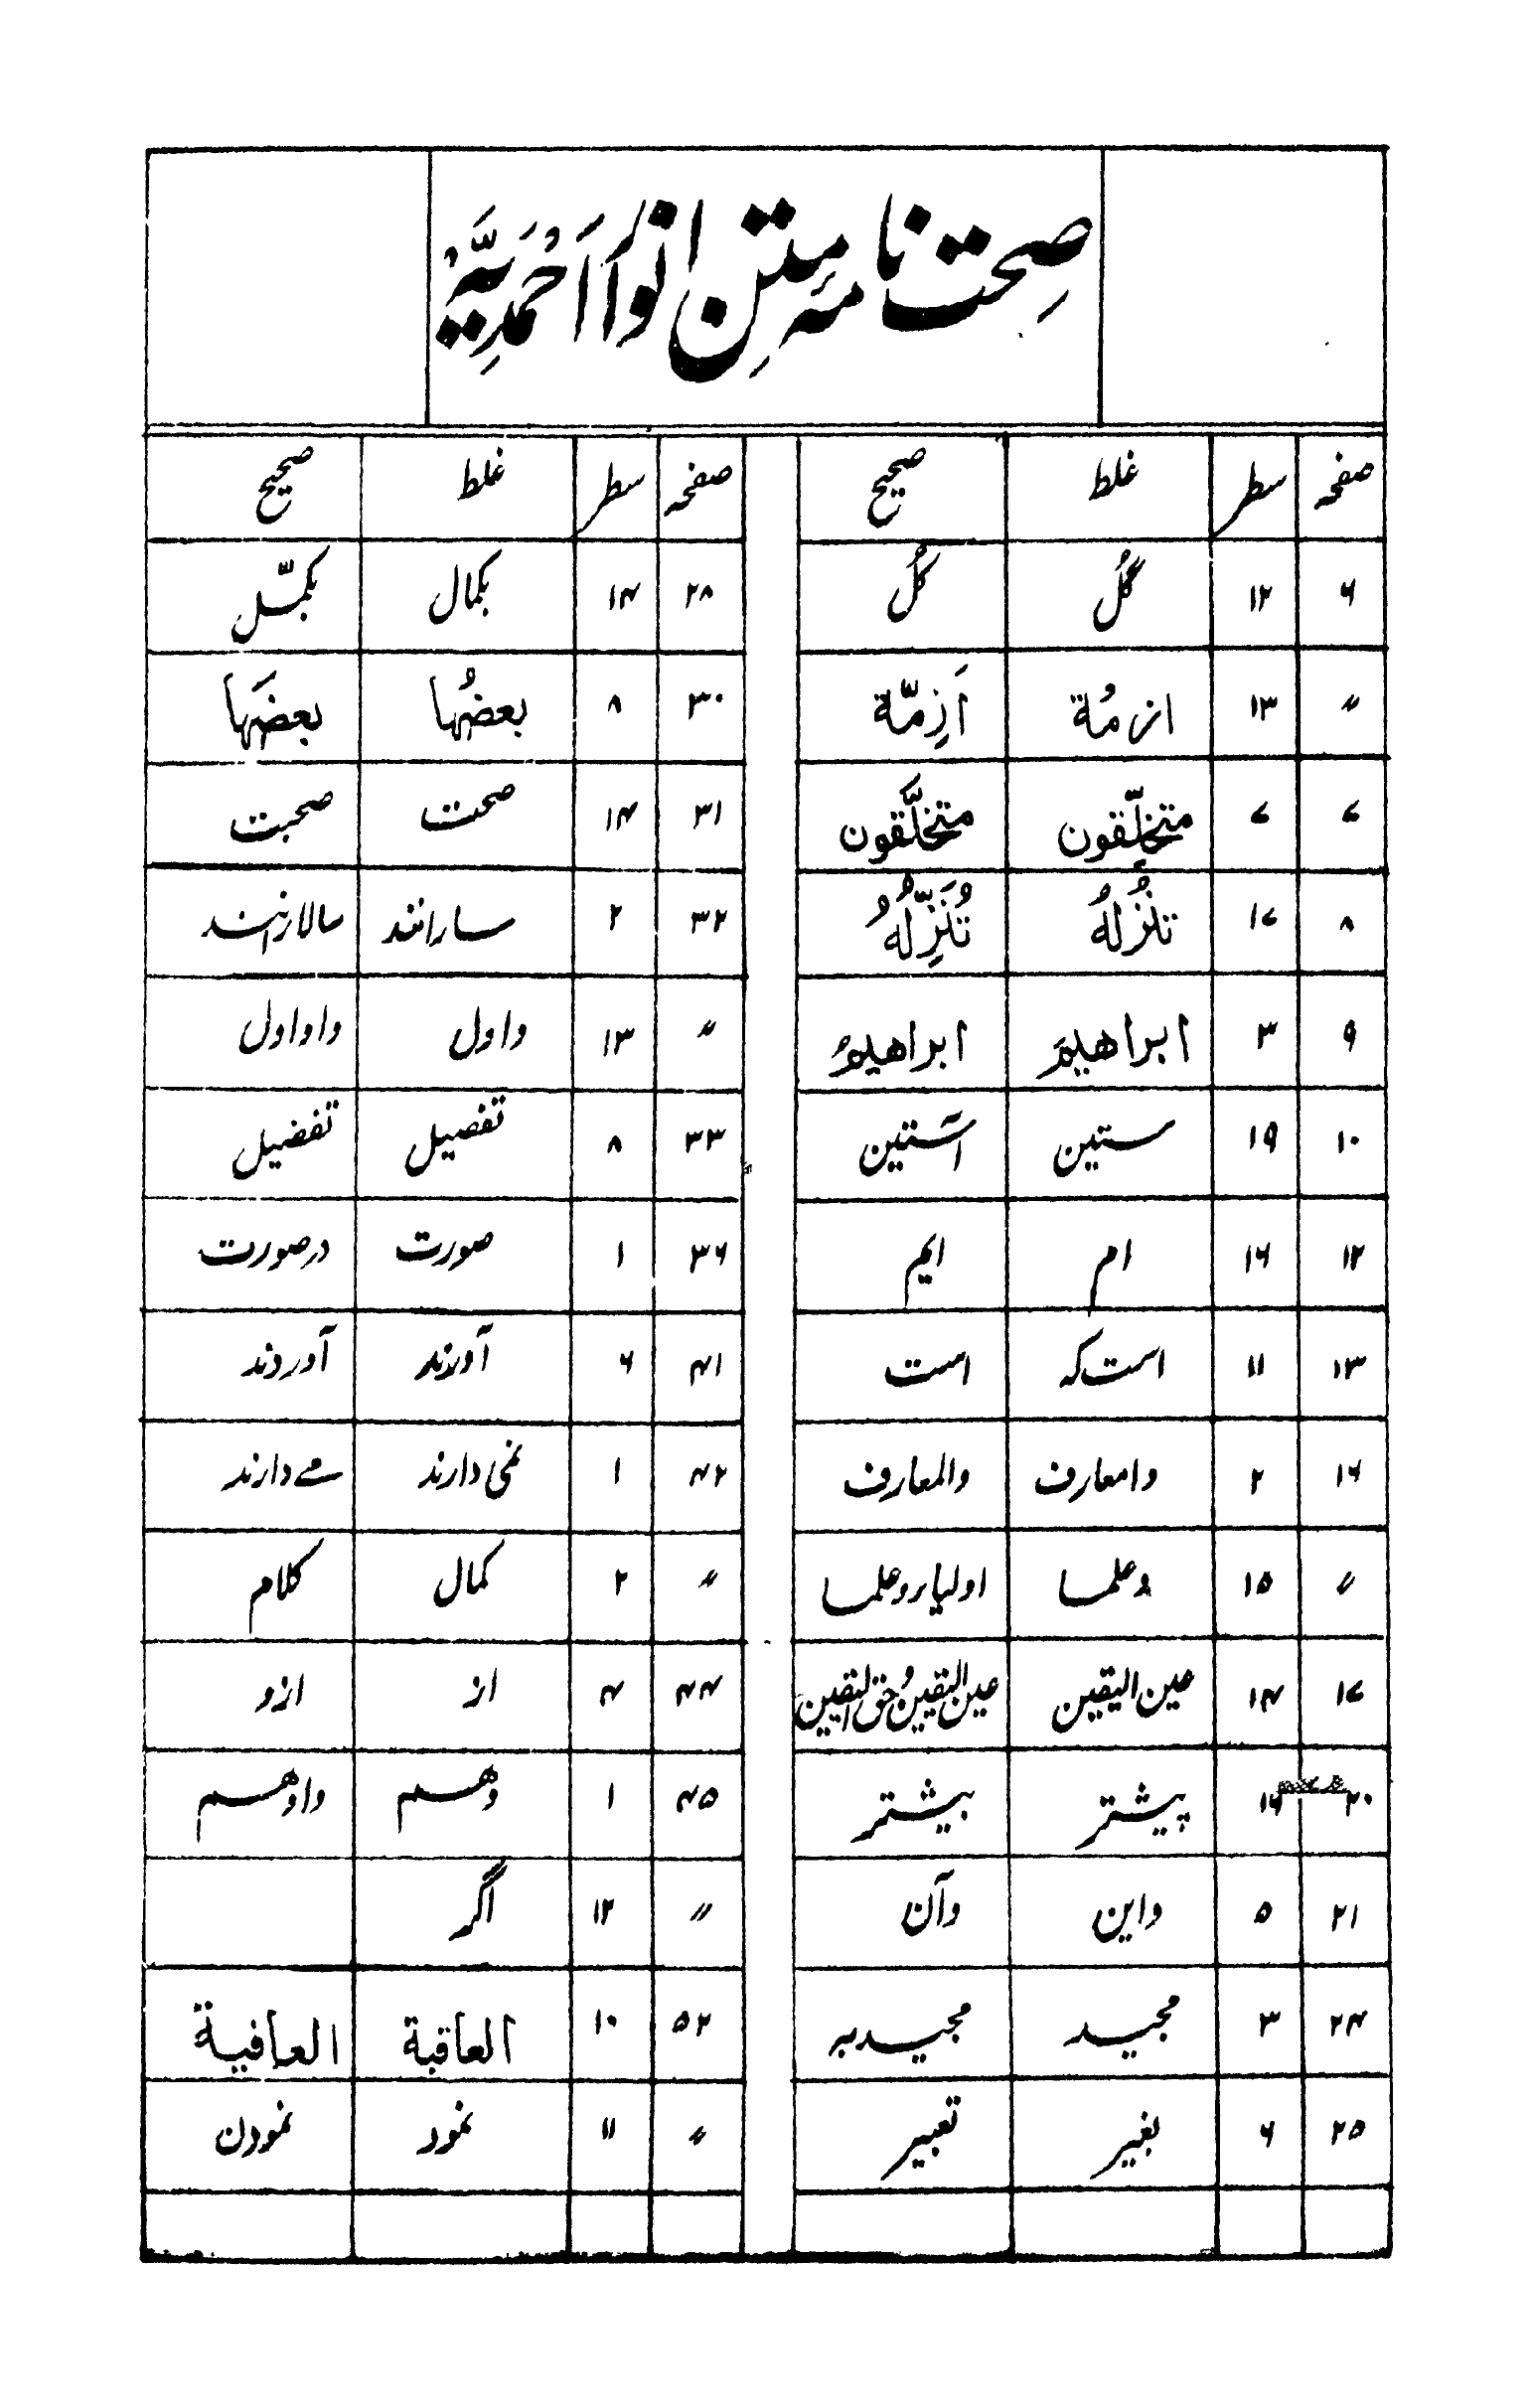 صِحت نامہ متنِ انوار احمدِیَّہ
صفحہ سطر غلط صحیح
۶ ۱۲ گُل کُل
〃 ۱۳ ازمُة اَزِمّة
۷ ۷ متخلِّقون متخلَّقون
۸ ۱۷ تنزُلهُ تُنَزِّلُهُ
۹ ۳ ابراهیمَ ابراهیمُ
۱۰ ۱۹ ستین آستین
۱۲ ۱۶ ام ایم
۱۳ ۱۱ است کہ است
۱۶ ۲ وامعارف والمعارف
〃 ۱۵ وعلما اولیاء وعلما
۱۷ ۱۴ عین الیقین عین الیقین وحق الیقین
۲۰ ۱۶ پیشتر بیشتر
۲۱ ۵ واین وآن
۲۴ ۳ مجید مجید بہ
۲۵ ۶ بغیر تعبیر
صفحہ سطر غلط صحیح
۲۸ ۱۴ بکمال بکمّل
۳۰ ۸ بعضُها بعضَها
۳۱ ۱۴ صحت صحبت
۳۲ ۲ سارانند سالارانند
〃 ۱۳ واول واو اول
۳۳ ۸ تفصیل تفضیل
۳۶ ۱ صورت در صورت
۴۱ ۶ آورند آوردند
۴۲ ۱ نمی دارند مے دارند
〃 ۲ کمال کلام
۴۴ ۴ از ازو
۴۵ ۱ وهم واوهم
〃 ۱۲ اگر
۵۲ ۱۰ العاقبة العافیة
〃 ۱۱ نمود نمودن